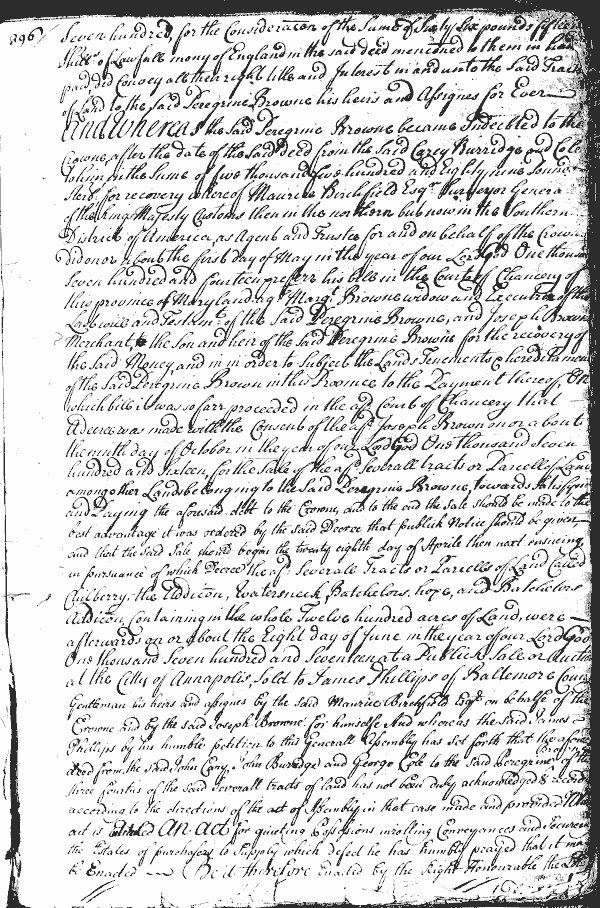 896
Seven hundred, for the Consideration of the Sume of Sixty Six pounds
Shills of Lawfull mony of England in the said deed mencioned to them in hand
paid, did Convey all their right title and Interest in and unto the Said Tract
of Land to the Said Peregrine Browne his heirs and Assignes for Ever
And Whereas the Said Peregrine Browne became Indebted to the
Crowne, after the date of the Said Deed from the Said Carey Burridge and Cole
to him, in the Sume of two thousand five hundred and Eighty nine pounds
Sterl. for recovery whereof Maurice Birchfield Esqr. Surveyor Generall
of the King Majesty Customs then in the northern but now in the Southern
District of America, as Agent and Trustee for and on behalf of the Crown
did on or about the first day of May in the year of our Lord God One thousand
Seven hundred and fourteen preferr his bill in the Court of Chancery of
this province of Maryland agt. Margt. Browne widow and Executrix of the
Last will and Testamt. of the Said Peregrine Browne, and Joseph Browne
Merchant, the Son and heir of the Said Peregrine Browne for the recovery of
the Said Money, and in in order to Subject the Lands Tenements & hereditaments
of the Said Peregrine Brown in this Province to the Payment thereof On
which bill it was So farr proceeded in the afd. Court of Chancery that
A decree was made with the Consent of the afd. Joseph Brown on or about
the ninth day of October in the year of our Lord God One thousand Seven
hundred and Sixteen, for the Sale of the afd. Severall tracts or Parcells of Land
amongst other Lands belonging to the Said Peregrine Browne, towards Satisfying
and Paying the aforesaid debt to the Crown, and to the end the Sale should be made to the
best advantage it was ordered by the Said Decree that publick Notice should be given
and that the Said Sale should begin the twenty eighth day of Aprile then next ensueing
in pursuance of which Decree the afd. Severall Tracts or Parcells of Land Called
Mulberry, the Addition, Watersneck, Batchelors, hope, and Batchelors
Addicon, Containing in the whole Twelve hundred acres of Land, were
afterwards on or about the Eight day of June in the year of our Lord God
One thousand Seven hundred and Seventeen at a Publick Sale or Auction
at the Citty of Annapolis, Sold to James Phillips of Baltemore County
Gentleman his heirs and assignes by the Said Maurice Birchfield Esqr. on behalf of the
Crowne and by the Said Joseph Browne for himselfe And whereas the Said James
Phillips by his humble petition to this Generall Assembly has Set forth that the afored
deed from the Said John Cary, John Burridge and George Cole to the Said Peregrine Browne of the
three fourths of the Said Severall tracts of land has not been duly acknowledged &
according to the directions of the act of Assembly in that case made and provided
act is entituled An Act for quieting Possessions inrolling Conveyances and Secureing
the Estates of purchasers to Supply which defect he has humbly prayed that it may
be Enacted Be it therefore Enacted by the Right Honourable the